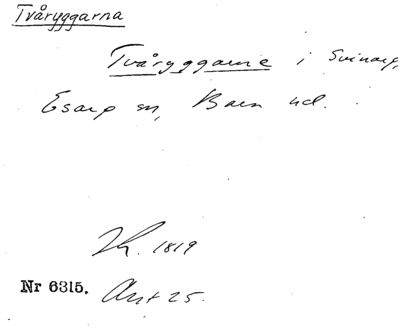 Tvåryggarna
Tvåryggarne i Svinarp,
Esarp sn, Bara hd.
Lk. 1819
Nr 6315. Akt 25.